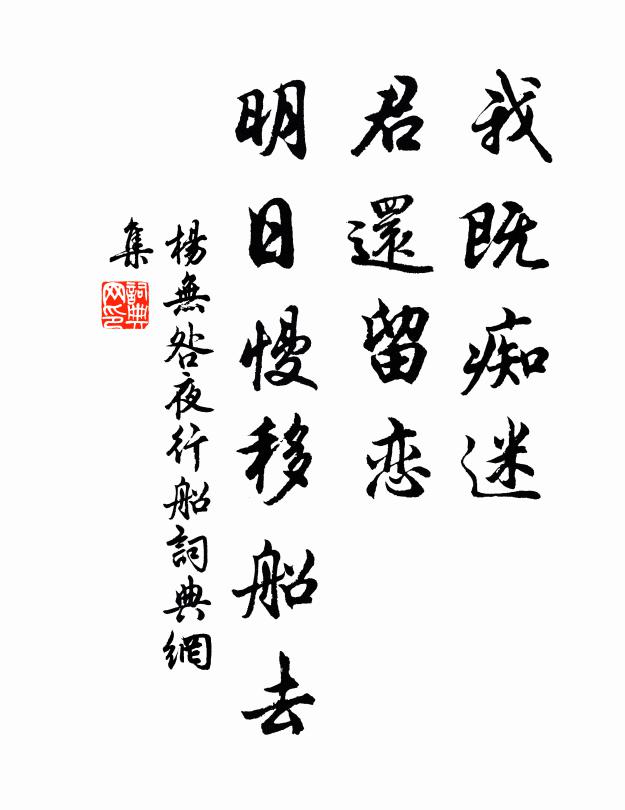 我既痴迷
君還留恋
明日慢移船去
楊無咎夜行船詞典網
集
詞典
网印